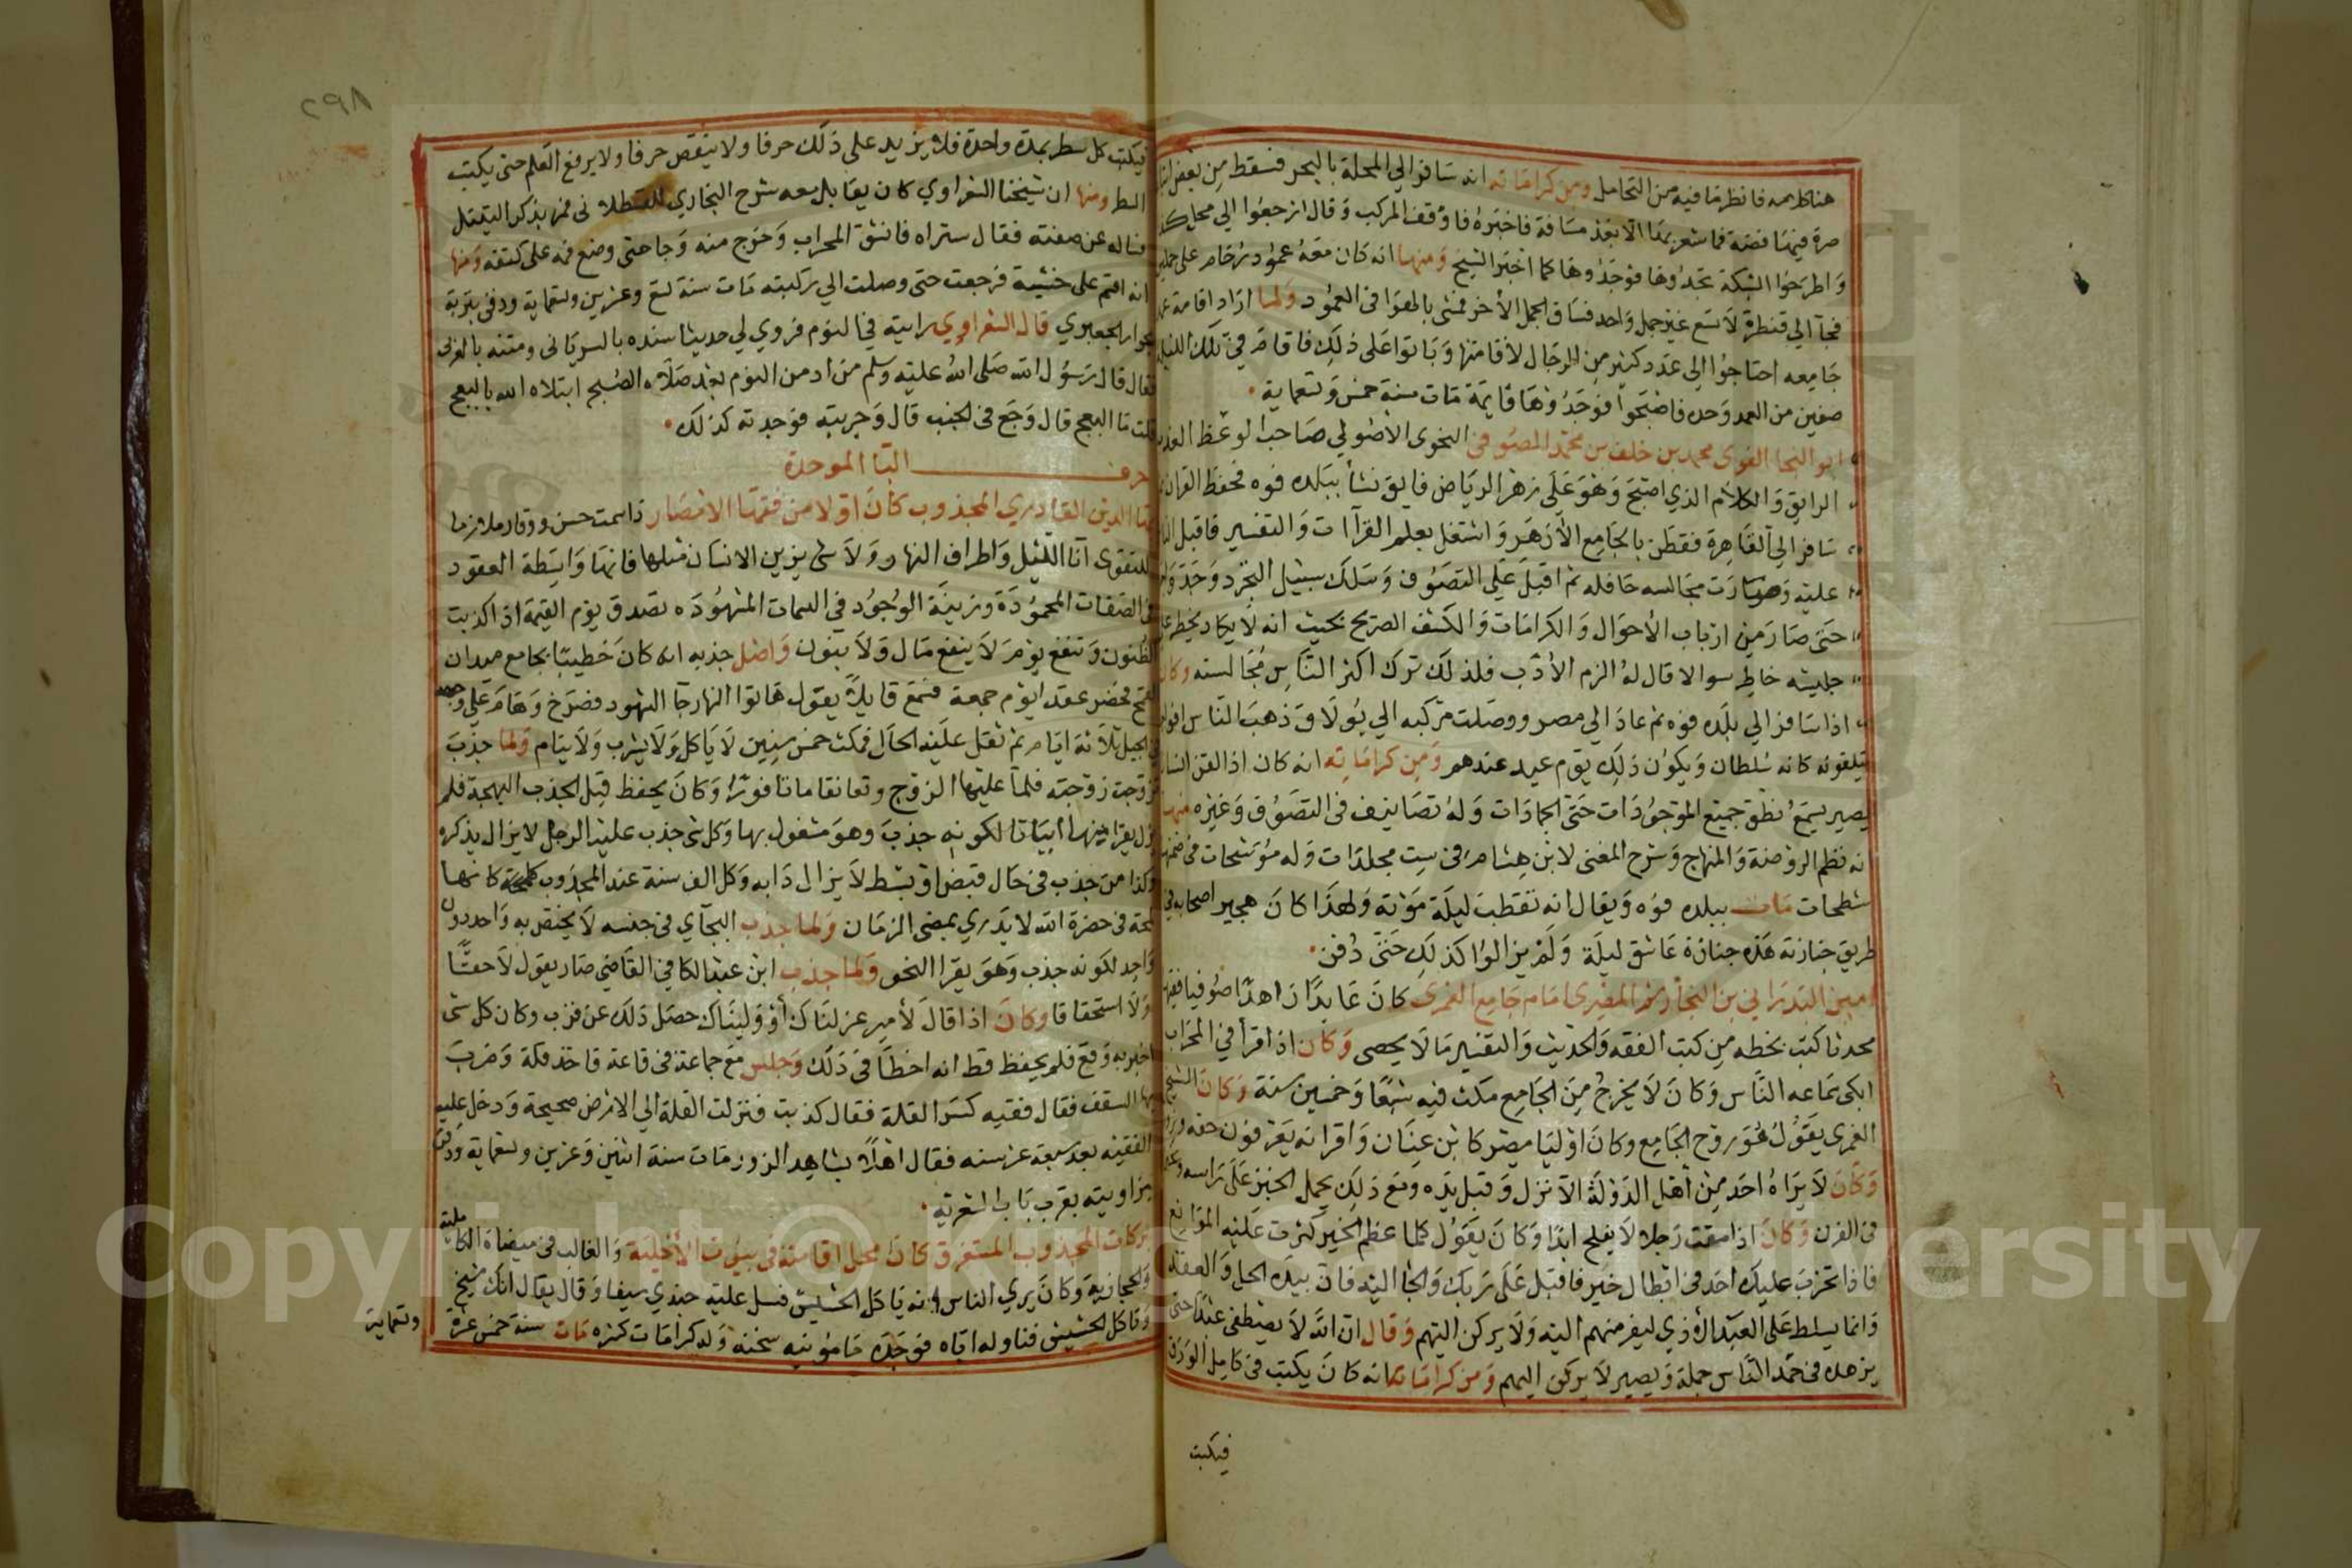 هذا كلامه فانظر ما فيه من التحامل ومن كراماته انه سافر الي المحلة بالبحر فسقط من بعض
صرة فيها فضة فما شعر بها الا بعد مسافة فاخبره فاوقف المركب وقال ارجعوا الي محل كذا
واطرحوا الشبكة تجدوها فوجدوها كما اخبر الشيخ ومنها انه كان معه عمود رخام على جملين
فجآ الي قنطرة لا تسع غير جمل واحد فساق الجمل الأخر فمشى بالهوا في العمود ولما اراد اقامة عمد
جامعه احتاجوا الى عدد كثير من الرجال لأقامتها وباتوا على ذلك فاقام في تلك الليلة
صفين من العمد وحده فاصبحوا فوجدوها قايمة مات سنة خمس وتسعماية
ابو النجا الفوي محمد بن خلف بن محمد المصوفي النحوى الأصولي صاحب الوعظ
الرايق والكلام الذي اصبح وهو على زهر الرياض فايق نشأ ببلده فوه فحفظ القران
سافر الى القاهرة فقطن بالجامع الأزهر واشتغل بعلم القرآات والتفسير فاقبل
عليه وصارت مجالسه حافله ثم اقبل على التصوف وسلك سبيل التجرد وجد
حتى صار من ارباب الأحوال والكرامات والكشف الصريح بحيث انه لا يكاد يخطر
جليسه خاطر سوا لا قال له الزم الأدب فلذلك ترك اكثر الناس مجالسته وكان
اذا سافر الي بلده فوه ثم عاد الي مصر ووصلت مركبه الي بولاق ذهب الناس افواجا
يتلقونه كانه سلطان ويكون ذلك يوم عيد عندهم ومن كراماته انه كان اذا لقن
يصير يسمع نطق جميع الموجودات حتى الجمادات وله تصانيف في التصوف وغيره منها
انه نظم الروضة والمنهاج وشرح المغنى لابن هشام في ست مجلدات وله موشحات في ضمنها
شطحات مات ببلده فوه ويقال انه تقطب ليلة موته ولهذا كان هجير اصحابه في
طريق جنازته هذه جنازة عاشق ليلة ولم يزالوا كذلك حتى دفن
امين الدين بن النجار المصرى امام جامع الغمرى كان عابدًا زاهدًا صوفيا فقيها
محدثا كتب بخطه من كتب الفقه والحديث والتفسير ما لا يحصى وكان اذا قرأ في المحراب
ابكى سماعه الناس وكان لا يخرج من الجامع مكث فيه سبعًا وخمسين سنة وكان الشيخ
الغمرى يقول هو روح الجامع وكان اوليا مصر كابن عنان واقرانه يعرفون حقه
وكان لا يراه احد من أهل الدولة الا نزل وقبل يده ومع ذلك يحمل الخبز على راسه
في الفرن وكان اذا مقت رجلا لا يفلح ابدا وكان يقول كلما عظم الخير كثرت عليه الموانع
فاذا تحزب عليك احد في ابطال خير فاقبل على ربك والجا اليه فان بيده الحل والعقد
وانما يسلط على العبد الأذي ليفر منهم اليه ولا يركن اليهم وقال ان الله لا يصطفى عبدًا حتى
يزهده في حمد الناس جملة ويصير لا يركن اليهم ومن كراماته انه كان يكتب في كامل الورق
فيكتب
٢٩٨
فيكتب كل سطر بمدة واحدة فلا يزيد على ذلك حرفا ولا ينقص حرفا ولا يرفع القلم حتى يكتب
السطر ومنها ان شيخنا الشعراوي كان يقابل معه شرح البخاري للقسطلاني فمر بذكر التيتل
فساله عن صفته فقال ستراه فانشق المحراب وخرج منه وجا حتى وضع فمه على كتفه ومنها
انه اقتم على خشبة فرجعت حتى وصلت الي ركبته مات سنة تسع وعشرين وتسعماية ودفن بتربة
جوار الجعبري قال الشعراوي رايته في النوم فروي لي حديثا سنده بالسرياني ومتنه بالعربي
فقال قال رسول الله صلى الله عليه وسلم من ادمن النوم بعد صلاة الصبح ابتلاه الله بالبعج
قلت ما البعج قال وجع في الجنب قال وجربته فوجدته كذلك
حرف البا الموحدة
بها الدين القادري المجذوب كان اولا من فقها الأمصار ذا سمت حسن ووقار ملازما
للتقوى آنا الليل واطراف النهار ولا شى يزين الانسان مثلها فانها واسطة العقود
في الصفات المحمودة وزينة الوجود في السمات المشهوده تصدق يوم القيمة اذا كذبت
الظنون وتنفع يوم لا ينفع مال ولا بنون واصل جذبه انه كان خطيبًا بجامع ميدان
القمح فحضر عقدا يوم جمعة فسمع قايلًا يقول هاتوا النار جآ الشهود فصرخ وهام على وجهه
في الجبل ثلاثة ايام ثم ثقل عليه الحال فمكث خمس سنين لا ياكل ولا يشرب ولا ينام ولما جذب
تزوجت زوجته فلما علم بها الزوج وتعانقا ماتا فورًا وكان يحفظ قبل الجذب البهجة فلم
يزل يقرا منها ابياتا لكونه جذب وهو مشغول بها وكل شى جذب عليه الرجل لا يزال يذكره
وكذا من جذب في حال قبض او بسط لا يزال دابه وكل الف سنة عند المجذوب كلمحة كانها
لمحة في حضرة الله لا يدري بمضى الزمان ولما جذب البجآي في جعسه لا يختص به واحد دون
واحد لكونه جذب وهو يقرا النحو ولما جذب ابن عبد الكافي القاضي صار يقول لا حقًّا
ولا استحقاقا وكان اذا قال لأمير عزلناك أو وليناك حصل ذلك عن قرب وكان كل شى
اخبر به وقع فلم يحفظ قط انه اخطأ في ذلك وجلس مع جماعة في قاعة فاخذ قلة وضرب
بها السقف فقال فقيه كسر القلة فقال كذبت فنزلت القلة الي الارض صحيحة ودخل عليه
الفقيه بعد سبعة عشر سنه فقال اهلًا بشاهد الزور مات سنة اثنين وعشرين وتسعماية ودفن
بزاويته بقرب باب الشعرية
بركات المجذوب المستغرق كان محل اقامته في بيوت الأخلية والغالب في ميضاة الكاملية
والحجازية وكان يري الناس انه ياكل الحشيش فسل عليه جندي سيفا وقال يقال انك شيخ
وتاكل الحشيش فناوله اياه فوجده مامونيه سخنة وله كرامات كثيره مات سنة خمس عشرة
وتسعماية